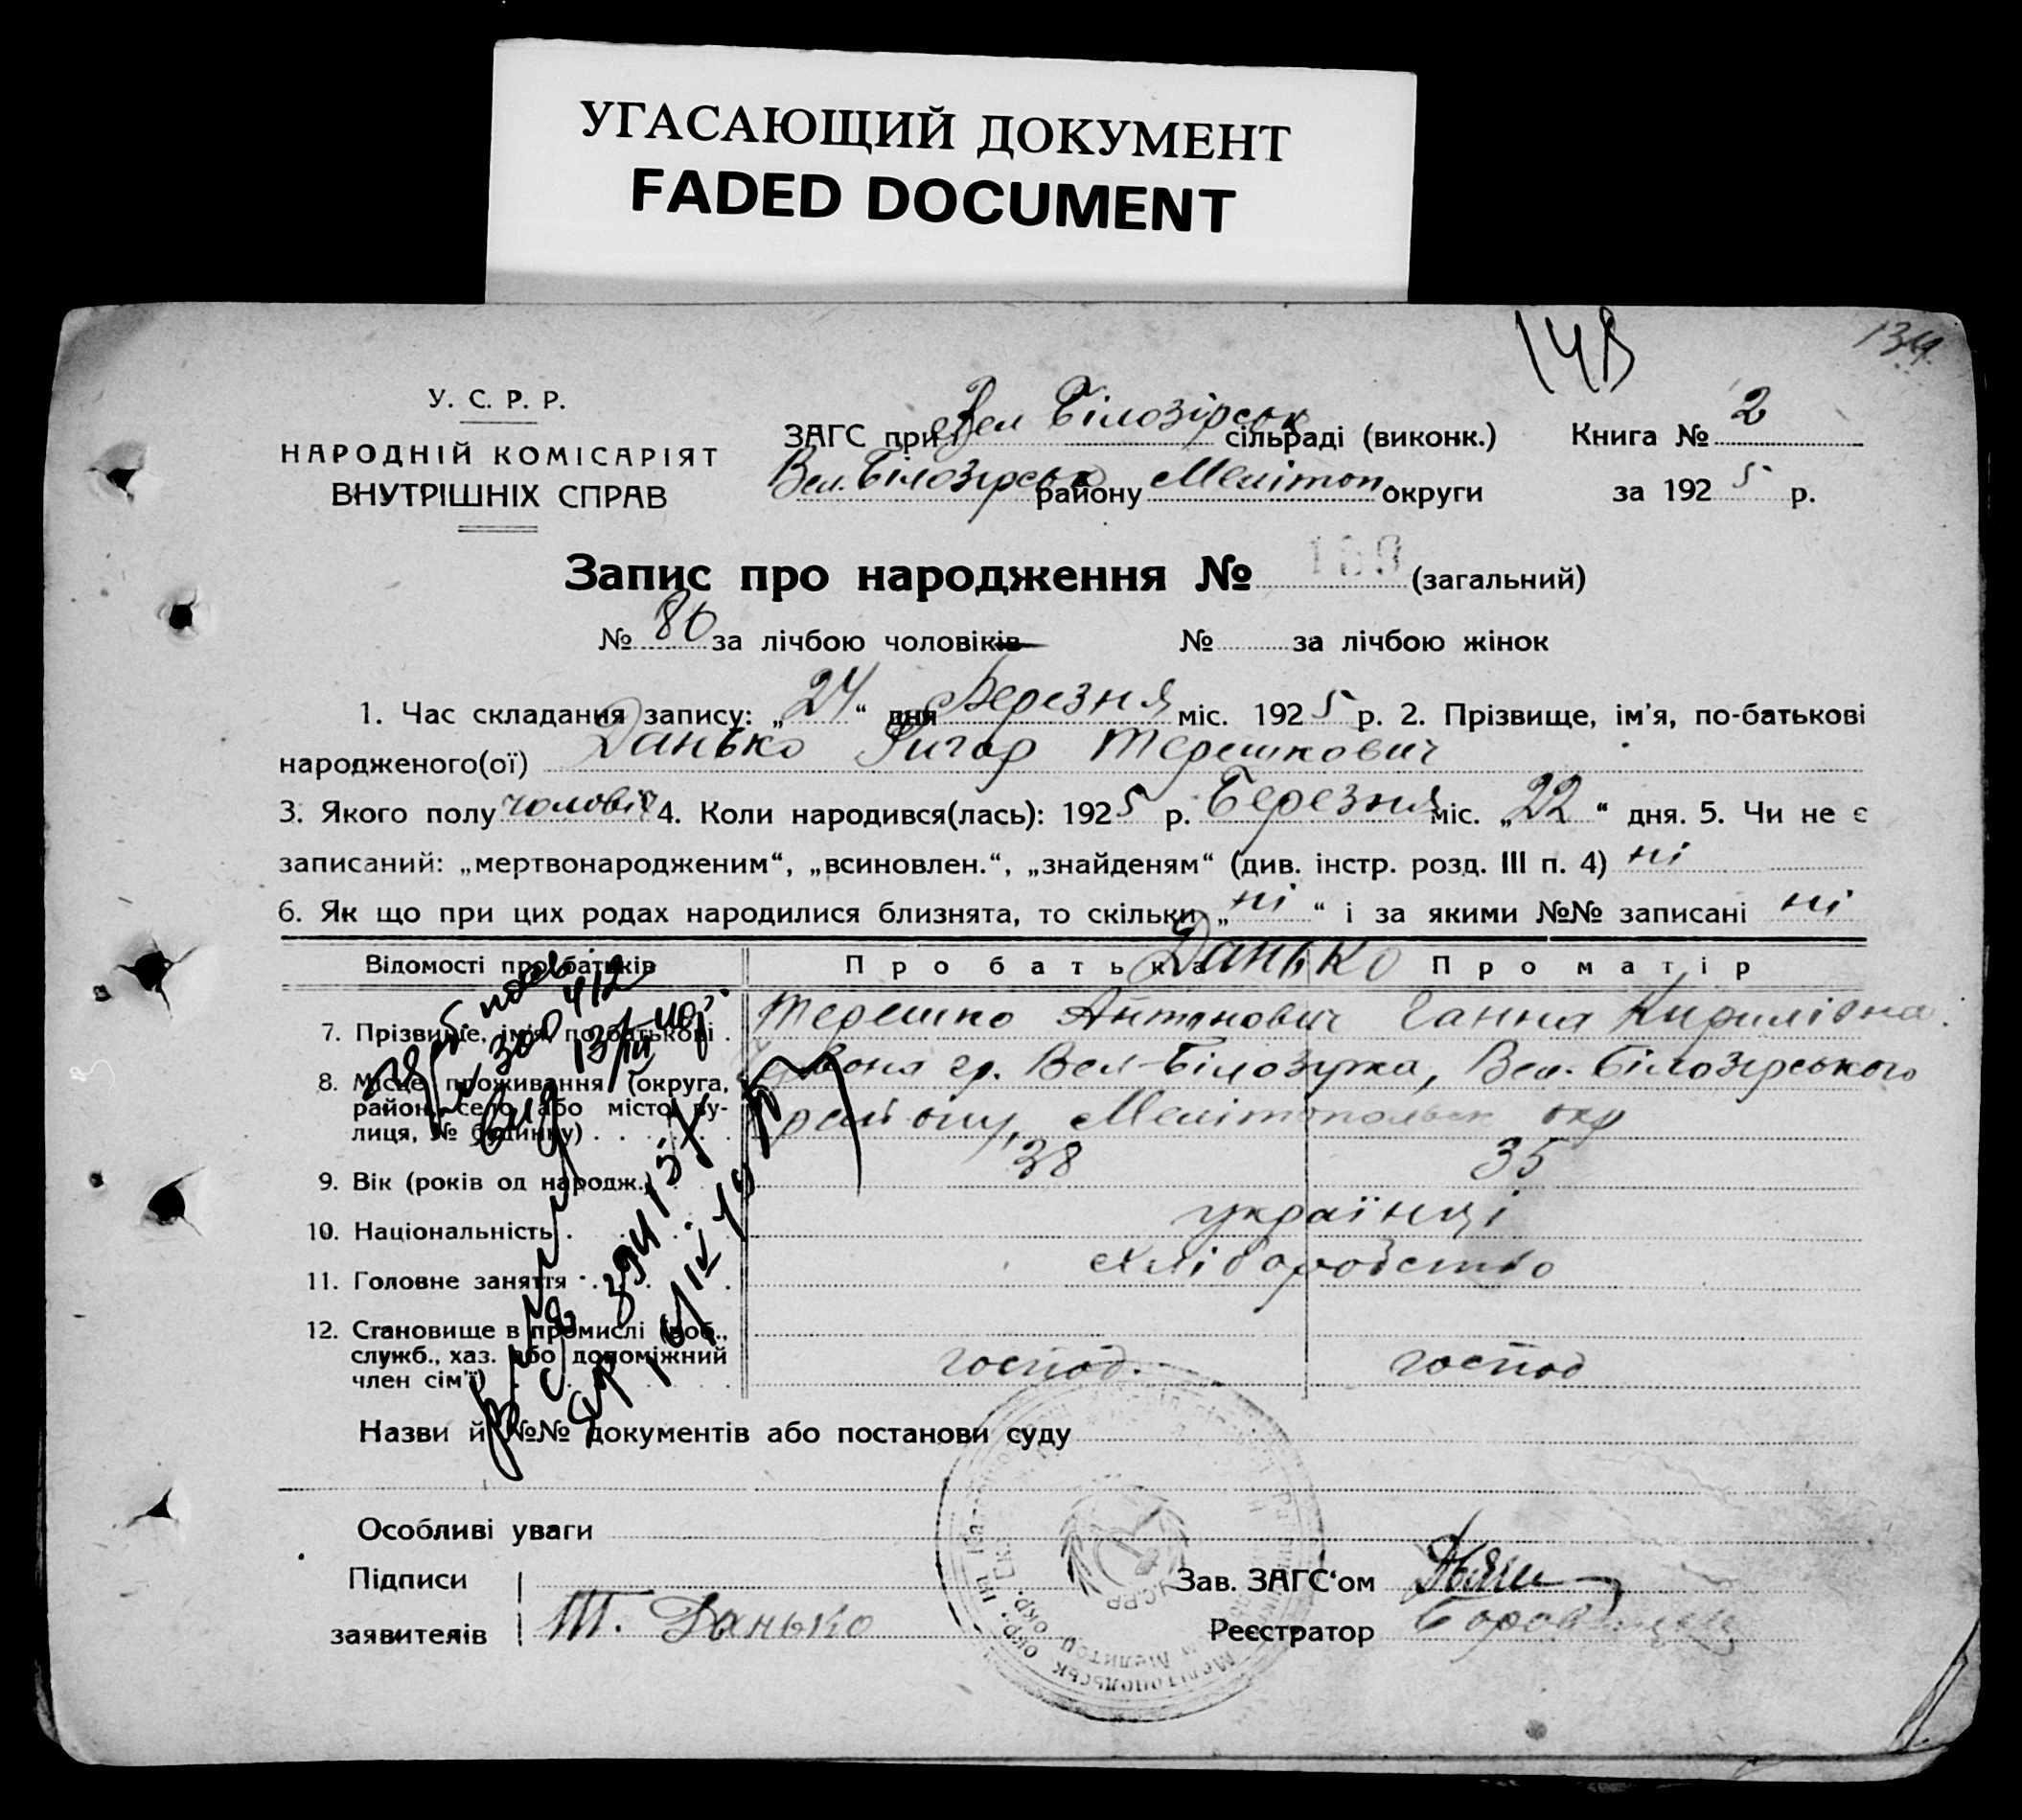 УГАСАЮЩИЙ ДОКУМЕНТ
FADED DOCUMENT
134.
У. С. Р. Р.
НАРОДНІЙ КОМІСАРІЯТ
ВНУТРІШНІХ СПРАВ
ЗАГС при Вел Білозірськ сільраді (виконк.) Книга № 2
Вел. Білозірськ району Мелітоп. округи за 1925 р.
Запис про народження № (загальний)
№ 80 за лічбою чоловіків № за лічбою жінок
1. Час складання запису: „24“ дня Березня міс. 1925 р. 2. Прізвище, ім'я, по-батькові
народженого(ої) Данько Григор Терешкович
3. Якого полу чоловіч 4. Коли народився(лась): 1925 р. Березня міс. „22“ дня. 5. Чи не є
записаний: „мертвонародженим“, „всиновлен.“, „знайденям“ (див. інстр. розд. III п. 4) ні
6. Як що при цих родах народилися близнята, то скільки „ні“ і за якими №№ записані ні
Відомості про батьків Про батька Данько Про матір
7. Прізвище, ім'я, по-батькові . Терешко Антонович Ганна Кирилівна
8. Місце проживання (округа, гр. Вел-Білозірка, Вел. Білозірського
район, село або місто, ву-
лиця, № будинку) . . . району, Мелітопольск окр
9. Вік (років од народж.) . 38 35
10. Національність . українці
11. Головне заняття . . хліборобство
12. Становище в промислі (роб.,
служб., хаз. або допоміжний
член сім'ї) господ. господ
Назви й №№ документів або постанови суду
Особливі уваги
Підписи Зав. ЗАГС‘ом
заявителів Т. Данько Реєстратор